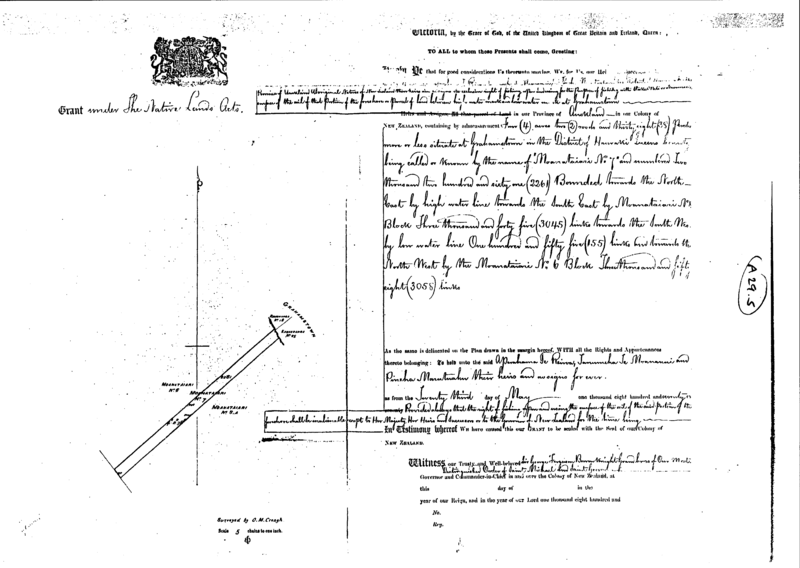 Victoria, by the Grace of God, of the United Kingdom of Great Britain and Ireland, Queen:
TO ALL to whom these Presents shall come, Greeting:
that for good considerations Us thereunto moving, We, for Us, our Hei
Grant under The Native Lands Acts.
Heirs and Assigns, All that parcel of Land in our Province of Auckland in our Colony of
NEW ZEALAND, containing by admeasurement Four (4) acres two (2) roods and thirty eight (38) Perches
more or less situate at Grahamstown in the District of Hauraki Queens County
being called or known by the name of "Moanataiari No 7" and numbered Two
thousand two hundred and sixty one (2261) Bounded towards the North
East by high water line towards the South East by Moanataiari No
Block Three thousand and forty five (3045) links towards the South We
by low water line One hundred and fifty five (155) links and towards the
North West by the Moanataiari No 6 Block Three thousand and fifty
eight (3058) links
A29.5
GRAHAMSTOWN
MOANATAIARI No 6
MOANATAIARI No 7
MOANATAIARI No 7A
As the same is delineated on the Plan drawn in the margin hereof, WITH all the Rights and Appurtenances
thereto belonging: To hold unto the said
their heirs and assigns for ever.
as from the Twenty third day of May one thousand eight hundred and
Provided always that the right of fishing upon and using the surface of the soil of the said portion of the
foreshore shall be inalienable except to Her Majesty Her Heirs and successors or to the Governor of New Zealand for the time being
In Testimony whereof We have caused this our GRANT to be sealed with the Seal of our Colony of
NEW ZEALAND.
Witness our Trusty and Well-beloved Sir George Ferguson Bowen Knight Grand Cross of Our Most
Distinguished Order of Saint Michael and Saint George
Governor and Commander-in-Chief in and over the Colony of New Zealand, at
this day of in the
year of our Reign, and in the year of our Lord one thousand eight hundred and
No.
Reg.
Surveyed by O. M. Creagh
Scale 5 chains to one inch.